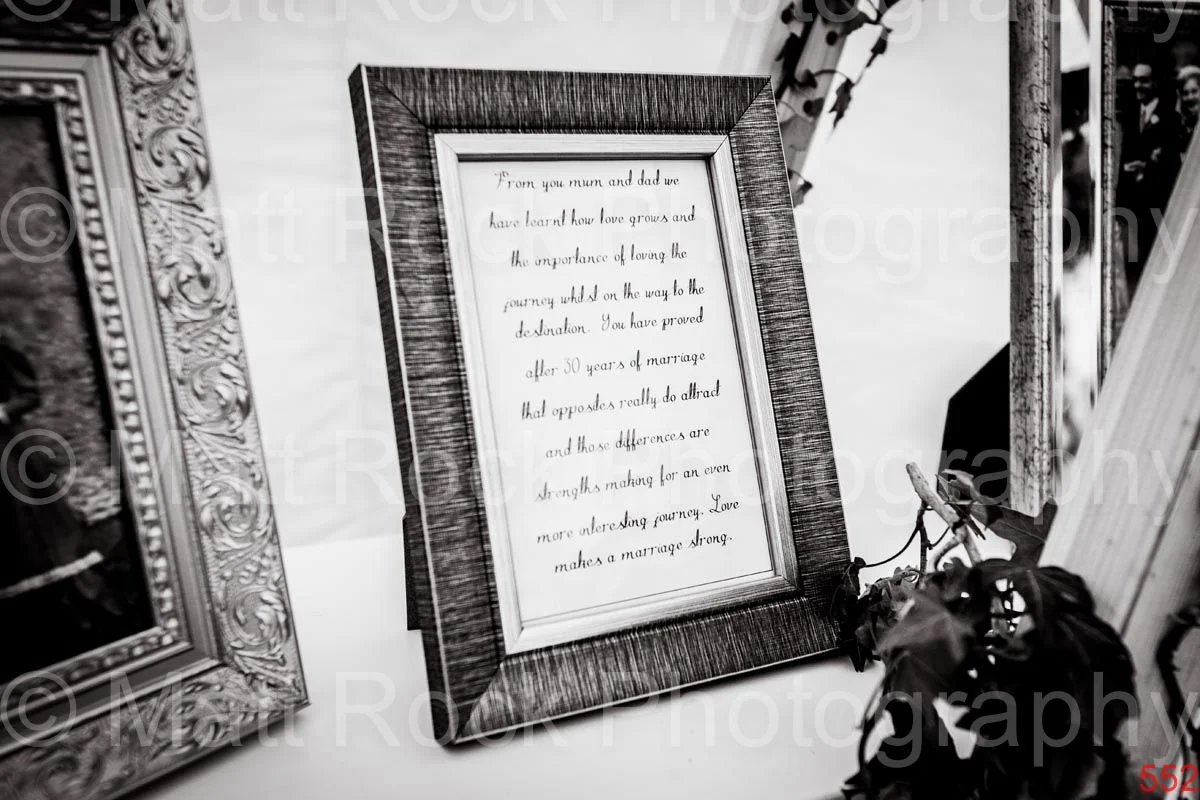 © Matt Rock Photography
From you mum and dad we
have learnt how love grows and
the importance of loving the
journey whilst on the way to the
destination. You have proved
after 30 years of marriage
that opposites really do attract
and those differences are
strengths making for an even
more interesting journey. Love
makes a marriage strong.
© Matt Rock Photography
© Matt Rock Photography
© Matt Rock Photography
552